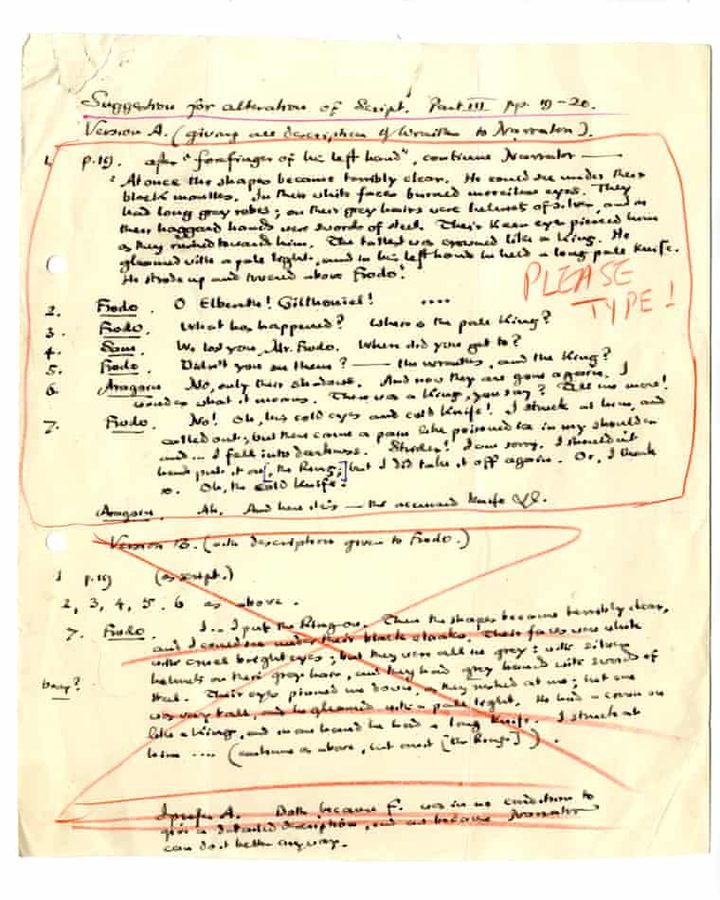 Suggestion for alteration of Script. Part III pp. 19-20.
Version A. (giving all description of Wraiths to Narrator).
1. p.19. after "forefinger of his left hand", continue Narrator —
'At once the shapes became terribly clear. He could see under their
black mantles. In their white faces burned merciless eyes. They
had long grey robes; on their grey hairs were helmets of silver, and in
their haggard hands were swords of steel. Their keen eyes pierced him
as they rushed toward him. The tallest was crowned like a King. He
gleamed with a pale light, and in his left hand he held a long pale knife.
He strode up and towered above Frodo.'
PLEASE
TYPE!
2. Frodo. O Elbereth! Gilthoniel! ....
3. Frodo. What has happened? Where is the pale King?
4. Sam. We lost you, Mr. Frodo. Where did you get to?
5. Frodo. Didn't you see them? — the wraiths, and the King?
6. Aragorn. No, only their shadows. And now they are gone again. I
wonder what it means. There was a King, you say? Tell me more!
7. Frodo. No! Oh, his cold eyes and cold knife! I struck at him, and
called out; but there came a pain like poisoned ice in my shoulder
and ... I fell into darkness. Strider! I am sorry. I shouldn't
have put it on [, the Ring;] but I did take it off again. Or, I think
so. Oh, the cold knife!
Aragorn. Ah. And here it is — the accursed knife
Version B. (with description given to Frodo.)
1 p.19 (as script.)
2, 3, 4, 5, 6 as above.
7. Frodo. I... I put the Ring on. Then the shapes became terribly clear,
and I could see under their black cloaks. Their faces were white
with cruel bright eyes; but they were all in grey: with silver
helmets on their grey hair, and they had grey hands with swords of
steel. Their eyes pinned me down, as they rushed at me; but one
was very tall, and he gleamed with a pale light. He had a crown on
like a king, and in one hand he had a long knife. I struck at
him .... (continue as above, but omit [the Ring;]).
I prefer A. Both because F. was in no condition to
give a detailed description, and because Narrator
can do it better anyway.